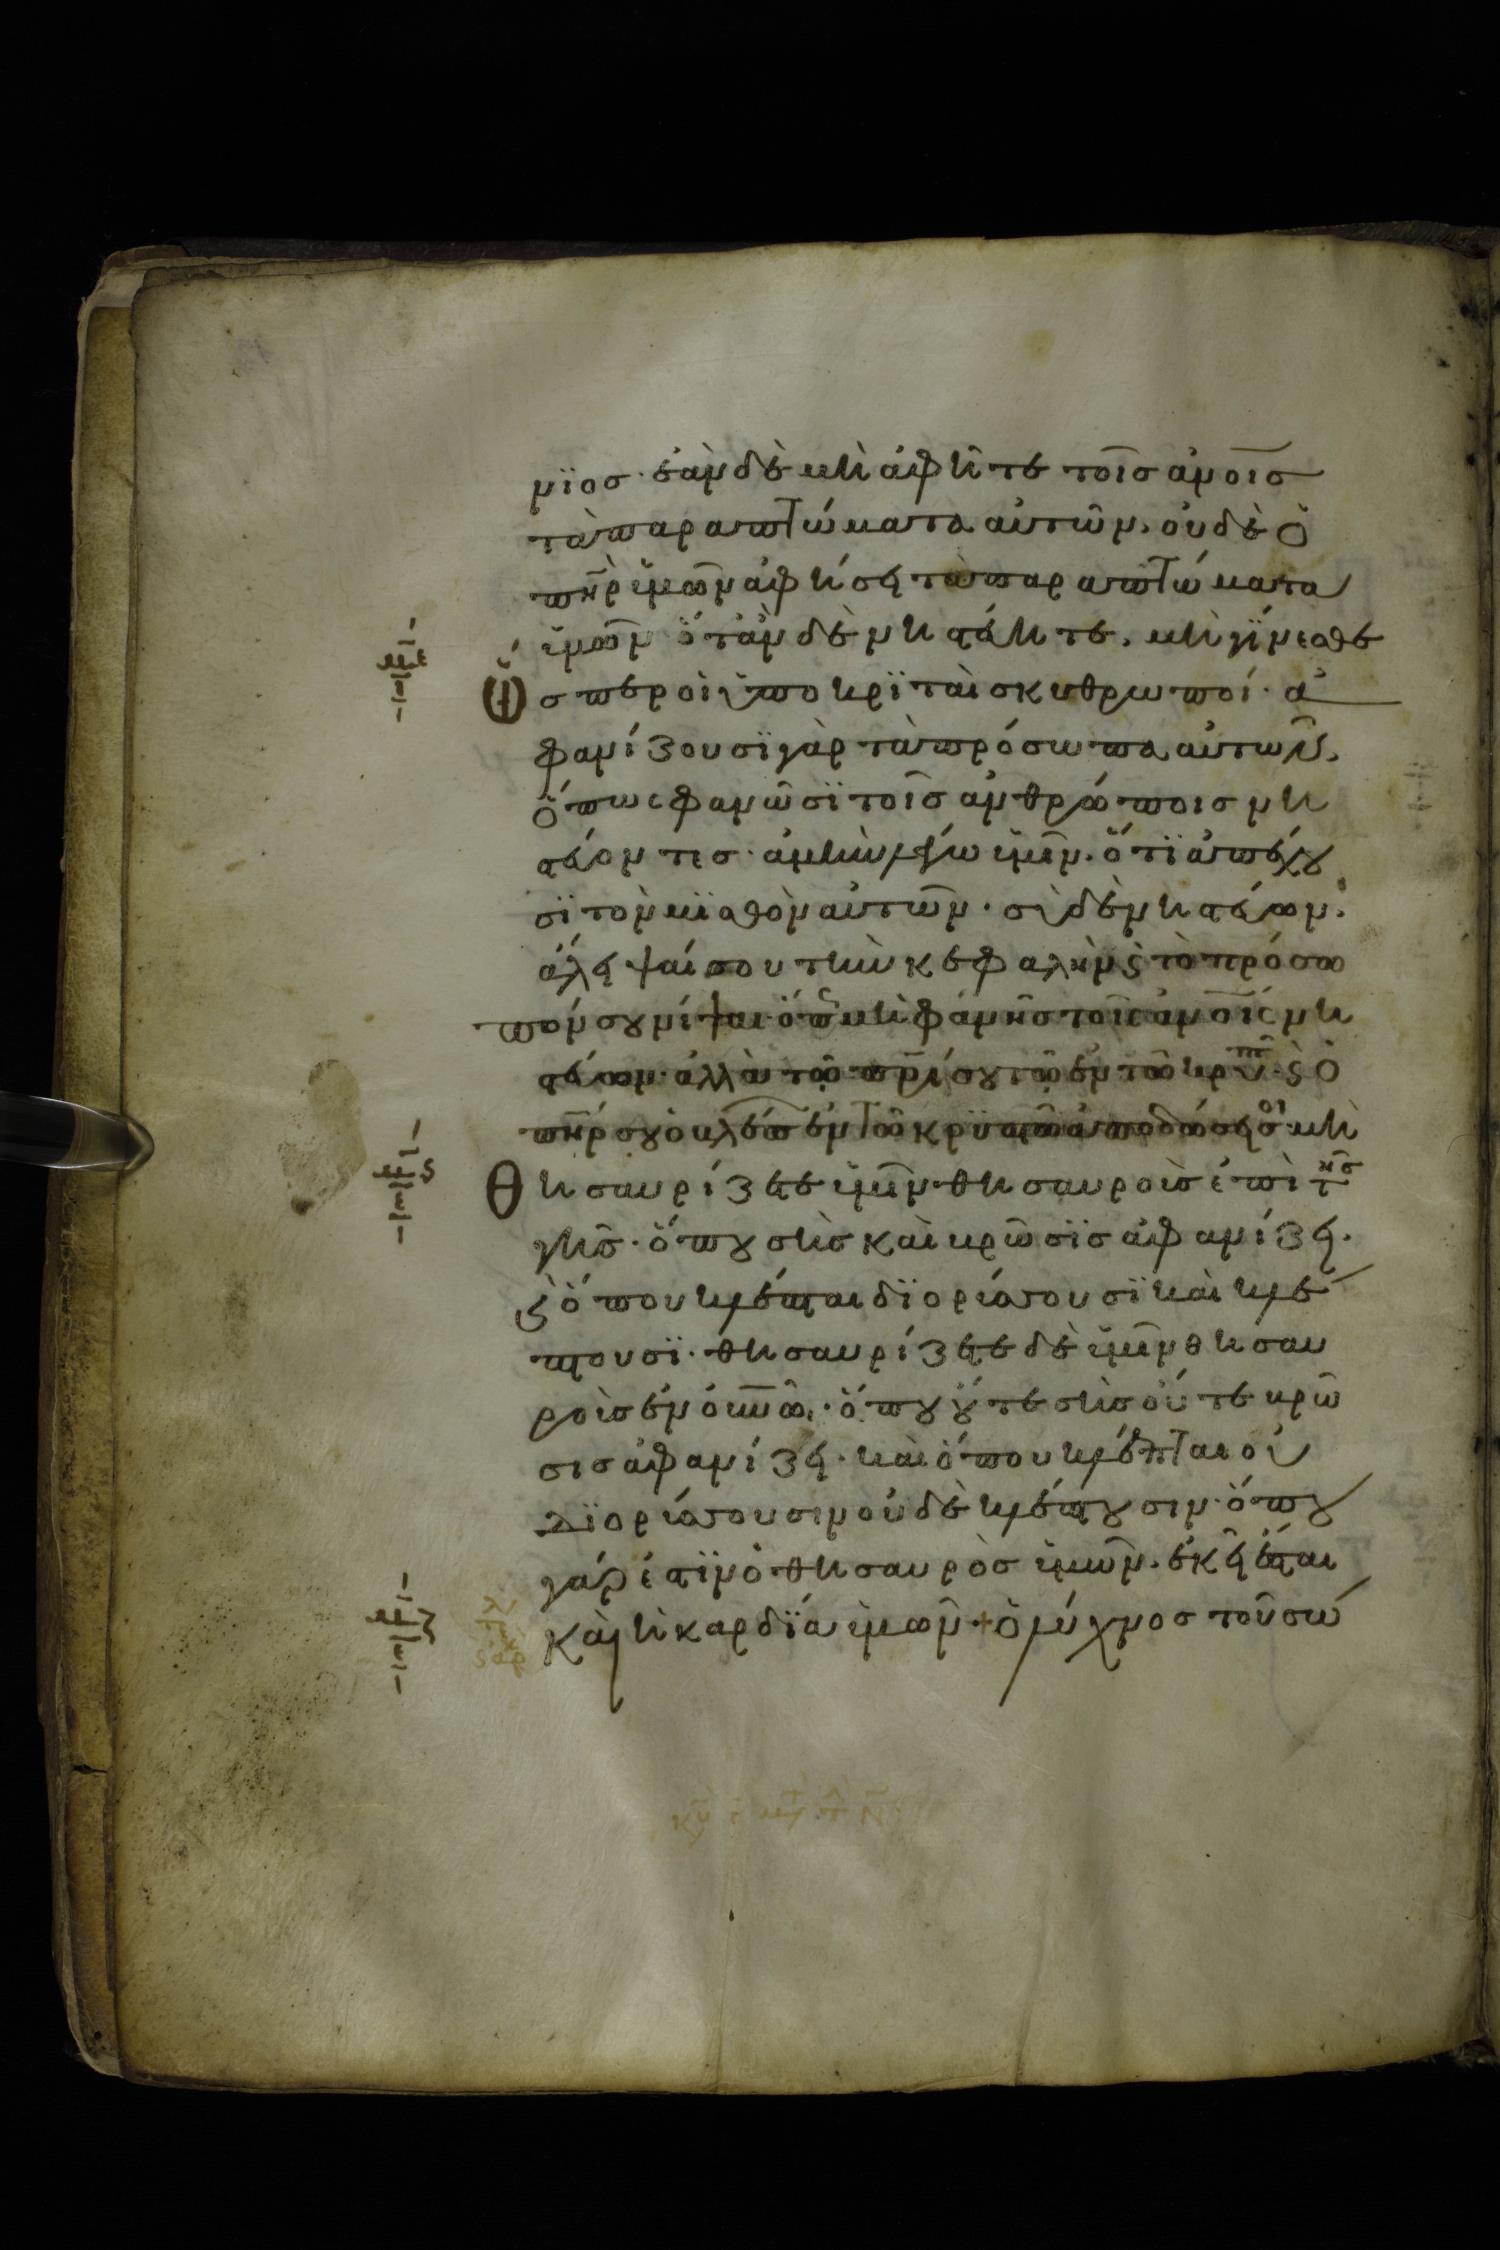 νϊος· ἐὰν δὲ μὴ ἀφῆτε τοῖς ἀνοῖς
τὰ παραπτώματα αὐτῶν. οὐδὲ ὁ
πηρ ὑμῶν ἀφήσει τὰ παραπτώματα
ὑμῶν· ὅταν δὲ νηστεύητε. μὴ γίνεσθε
ὥσπερ οἱ ὑποκρϊταὶ σκυθρωποί· ἀ
φανίζουσϊ γὰρ τὰ πρόσωπα αὐτῶν.
ὅπως φανῶσϊ τοῖς ἀνθρώποις νη
στεύοντες· ἀμὴν λέγω ὑμῖν. ὅτϊ ἀπέχου
σϊ τὸν μϊσθὸν αὐτῶν· σὺ δὲ νηστεύων.
ἄλειψαί σου τὴν κεφαλὴν ϛ τὸ πρόσω
πόν σου νίψαι· ὅπς μὴ φάνῆς τοῖς ἀνοῖς νη
στεύων· ἀλλὰ τῶ πρί σου τῶ ἐν τῶ κρυπτ· ϛ ὁ
πηρ σου ὁ βλέπ ἐν τῶ κρϋπτῶ ἀποδώσει σοι· μὴ
θησαυρίζετε ὑμῖν θησαυροὺς ἐπὶ της
γῆς· ὅπου σὴς καὶ βρῶσϊς ἀφανίζει.
ϛ ὅπου κλέπται δϊορύσσουσϊ καὶ κλέ
πτουσϊ· θησαυρίζετε δὲ ὑμῖν θησαυ
ροὺς ἐν οὐνῶ· ὅπου οὔτε σὴς οὔτε βρῶ
σις ἀφανίζει· καὶ ὅπου κλέπται οὐ
δϊορύσσουσιν οὐδὲ κλέπτουσιν· ὅπου
γάρ ἐστϊν ὁ θησαυρὸς ὑμῶν. ἐκεῖ ἔσται
καὶ ἡ καρδϊα ὑμῶν + ὁ λύχνος τοῦ σώ